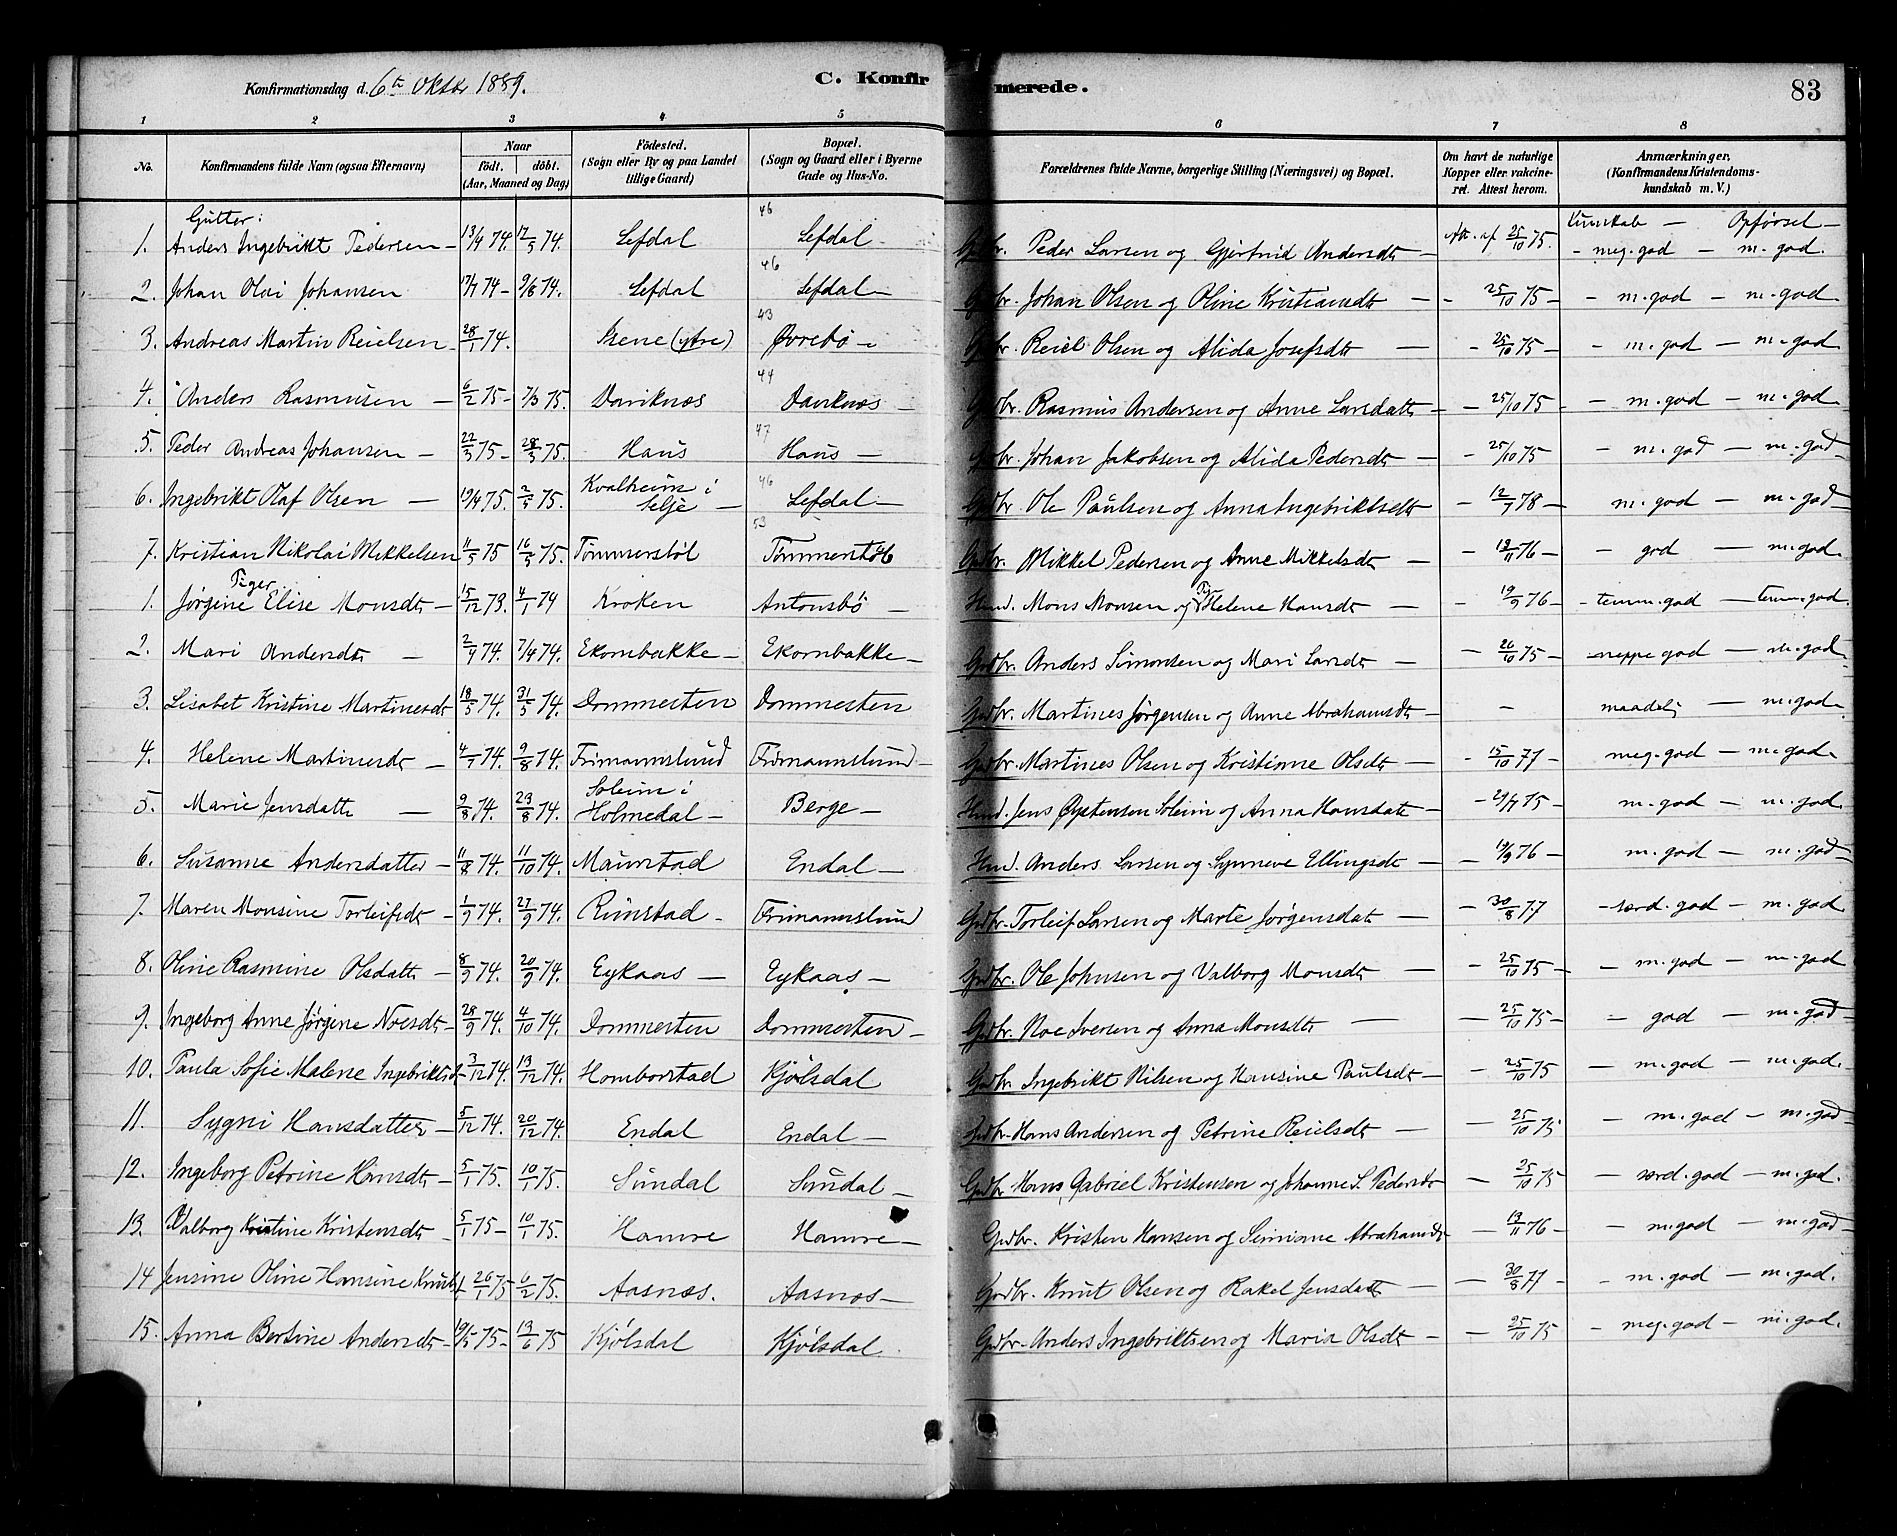 Konfirmationsdag d. 6te Oktbr 1889.
C. Konfirmerede.
83
1 2 3 4 5 6 7 8
No.
Konfirmandens fulde Navn (ogsaa Efternavn)
Naar
födt. döbt.
(Aar, Maaned og Dag)
Födested.
(Sogn eller By og paa Landet
tillige Gaard)
Bopæl.
(Sogn og Gaard eller i Byerne
Gade og Hus-No.
Forældrenes fulde Navne, borgerlige Stilling (Næringsvei) og Bopæl.
Om havt de naturlige
Kopper eller vakcine-
ret. Attest herom.
Anmærkninger.
(Konfirmandens Kristendoms-
kundskab m. V.)
Gutter: 46 Kunskab — Opførsel —
1. Anders Ingebrikt Pedersen — 13/4 74. 17/5 74. Lefdal Lefdal — Gbr. Peder Larsen og Gjertrud Andersdtr — Att. af 25/10 75. — meg. god — m. god.
46
2. Johan Olai Johansen 17/7 74 — 9/8 74. Lefdal Lefdal — Gdbr. Johan Olsen og Oline Kristiansdtr — 25/10 75 — m. god — m. god
43
3. Andreas Martin Reielsen 28/1 74. Isene (ytre) Øvrebø — Gbr. Reiel Olsen og Alida Josefsdtr — 25/10 75 — m. god — m. god
44
4. Anders Rasmusen — 6/2 75 — 7/3 75. Daviknæs Daviknæs — Gdbr. Rasmus Andersen og Anne Larsdatter — 25/10 75 — m. god — m. god.
47
5. Peder Andreas Johansen — 22/3 75 — 28/3 75. Haus Haus — Gdbr. Johan Jakobsen og Alida Pedersdtr — 25/10 75 — m. god — m. god
46
6. Ingebrikt Olaf Olsen — 19/4 75. 2/5 75. Kvalheim i Selje — Lefdal — Gdbr. Ole Paulsen og Anna Ingebriktsdtr — 12/7 78 — m. god — m. god
53
7. Kristian Nikolai Mikkelsen 11/5 75 16/5 75. Tømmerstøl Tømmerstøl Gdbr. Mikkel Pedersen og Anne Mikkelsdtr — 19/11 76 — god — m. god.
Piger
1. Jørgine Elise Monsdtr — 15/12 73. 4/1 74 Kroken Antonsbø — Hmd. Mons Monsen og Pige Helene Hansdtr — 19/9 76 — temm. god — temm. god.
2. Mari Andersdtr — 2/4 74. 7/4 74. Ekornbakke — Ekornbakke — Gdbr. Anders Simonsen og Mari Larsdtr — 26/10 75 — neppe god — m. god
3. Lisabet Kristine Martinesdtr 18/5 74. 31/5 74. Dommesten Dommesten Gdbr. Martines Jørgensen og Anne Abrahamsdtr — — maadelig — m. god
4. Helene Martinesdtr — 4/7 74. 9/8 74. Frimannslund Frimannslund — Gdbr. Martines Olsen og Kristianne Olsdtr — 15/10 77 — meg. god — m. god
5. Marie Jensdatter — 9/8 74. 23/8 74. Soleim i Holmedal — Berge — Hmd. Jens Øystensen Soleim og Anna Hansdatter — 29/7 75 — m. god — m. god.
6. Susanne Andersdatter — 11/8 74. 11/10 74. Maurstad Endal — Hmd. Anders Larsen og Synneve Ellingsdtr — 19/9 76 — m. god — m. god
7. Maren Monsine Torleifsdtr — 1/9 74. 27/9 74. Rimstad — Frimannslund Gdbr. Torleif Larsen og Marte Jørgensdatter — 30/8 77 — særd. god — m. god
8. Oline Rasmine Olsdatter — 8/9 74. 20/9 74. Eykaas — Eykaas — Gdbr. Ole Johnsen og Valborg Monsdtr — 25/10 75 — m. god — m. god
9. Ingeborg Anne Jørgine Noesdtr — 28/9 74. 4/10 74. Dommesten Dommesten — Gdbr. Noe Iversen og Anna Monsdtr — 25/10 75 — god — m. god
10. Paula Sofie Malene Ingebriktsd. 3/12 74. 13/12 74. Hombostad Kjølsdal Gdbr. Ingebrikt Nilsen og Hansine Paulsdtr — 25/10 75 — m. god — m. god.
11. Sygni Hansdatter — 5/12 74. 20/12 74. Endal Endal — Gdbr. Hans Andersen og Petrine Reielsdtr — 25/10 75 — m. god — m. god
12. Ingeborg Petrine Hansdtr — 5/1 75. 10/1 75. Sundal Sundal — Gdbr. Hans Gabriel Kristensen og Johanne S. Pedersdtr — 25/10 75 — særd. god — m. god.
13. Valborg Kristine Kristensdtr 5/1 75 — 10/1 75. Hamre Hamre — Gdbr. Kristen Hansen og Simone Abrahamsdtr — 13/11 76 — m. god — m. god
14 Jensine Oline Hansine Knutsd. 26/1 75 6/2 75. Aasnæs. Aasnæs — Gdbr. Knut Olsen og Rakel Jensdatter — 30/8 77 — m. god — m. god.
15. Anna Bertine Andersdtr 19/5 75 — 13/6 75 Kjølsdal Kjølsdal. Gdbr. Anders Ingebriktsen og Maria Olsdtr — 25/10 75 — meg. god — m. god.